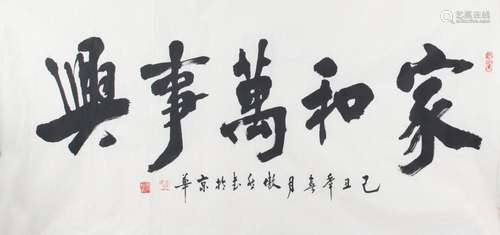 家和萬事興
己丑年春月傲然書於京華